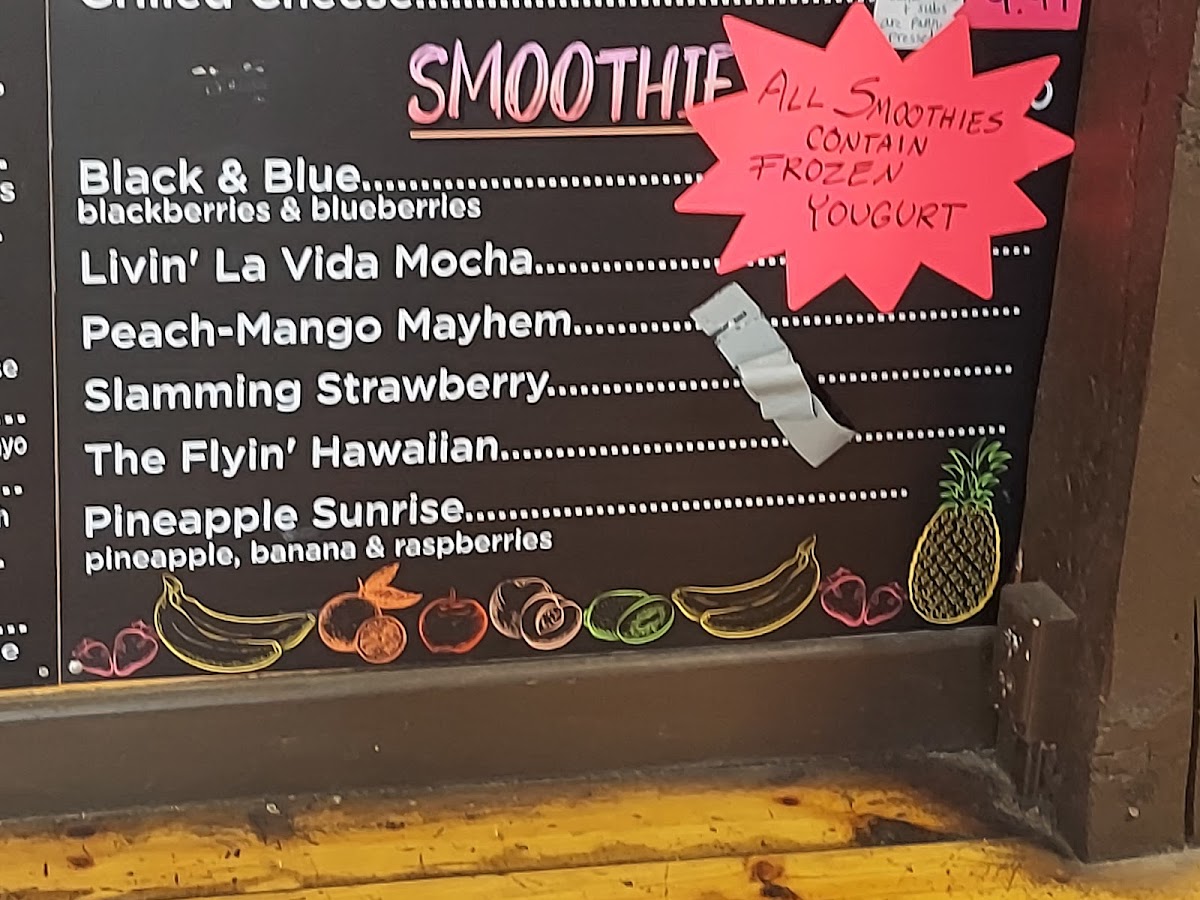 Grilled Cheese
& subs
are
pressed
9.49
SMOOTHIE
ALL SMOOTHIES
CONTAIN
FROZEN
YOUGURT
Black & Blue
blackberries & blueberries
Livin' La Vida Mocha
Peach-Mango Mayhem
Slamming Strawberry
The Flyin' Hawaiian
Pineapple Sunrise
pineapple, banana & raspberries